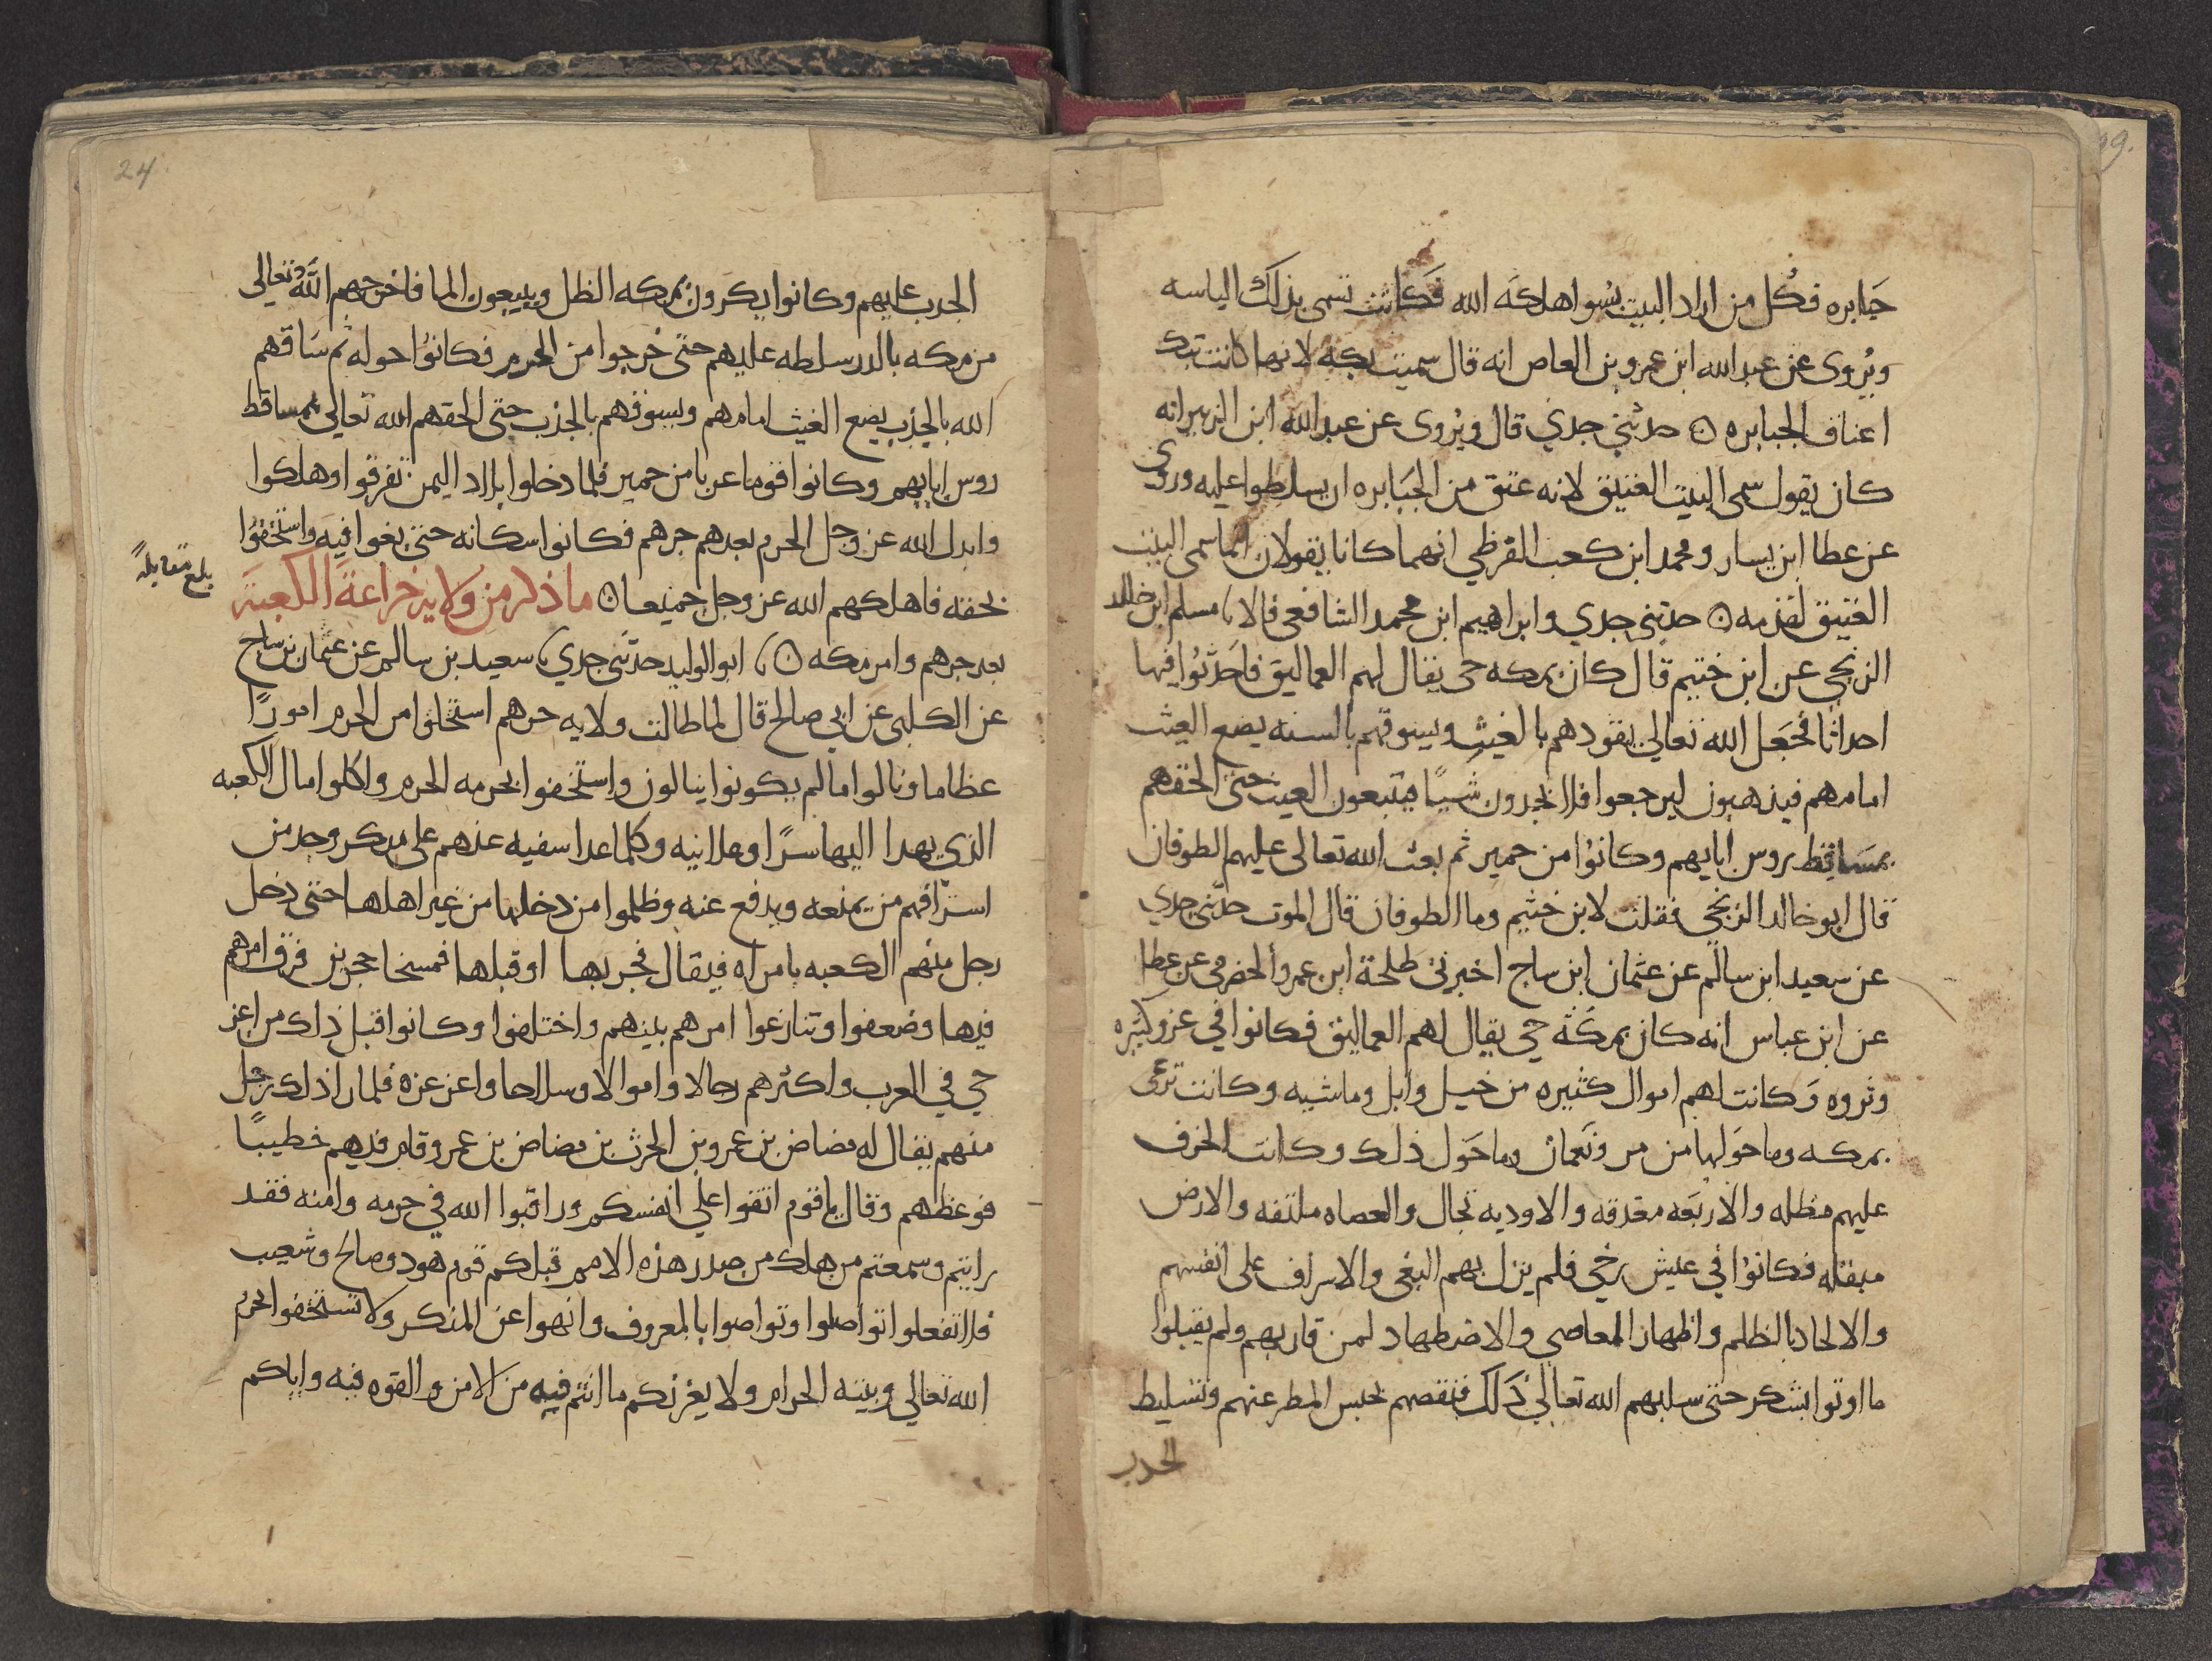 جبابره فكل من اراد البيت بسوا هلكه الله فكانت تسمى بذلك الباسه
ويروى عن عبد الله ابن عمرو بن العاص انه قال سميت بكه لانها كانت تبك
اعناق الجبابره ن حدثني جدي قال ويروى عن عبد الله ابن الزبير انه
كان يقول سمي البيت العتيق لانه عتق من الجبابره ان يسلطوا عليه وروى
عن عطا ابن يسار ومحمد ابن كعب القرظي انهما كانا يقولان انما سمي البيت
العتيق لقدمه ن حدثني جدي وابراهيم ابن محمد الشافعي قالا نا مسلم ابن خالد
الزنجي عن ابن خثيم قال كان بمكه حي يقال لهم العماليق فاحدثوا فيها
احداثا فجعل الله تعالى يقودهم بالغيث ويسوقهم بالسنه يضع الغيث
امامهم فيذهبون ليرجعوا فلا يجدون شيئا فيتبعون الغيث حتى الحقهم
بمساقط روس ابايهم وكانوا من حمير ثم بعث الله تعالى عليهم الطوفان
قال ابو خالد الزنجي فقلت لابن خثيم وما الطوفان قال الموت حدثني جدي
عن سعيد ابن سالم عن عثمان ابن ساج اخبرني طلحة ابن عمرو الحضرمي عن عطا
عن ابن عباس انه كان بمكة حي يقال لهم العماليق فكانوا في عز وكثره
وثروه وكانت لهم اموال كثيره من خيل وابل وماشيه وكانت ترعى
بمكه وما حولها من مر ونعمان وما حول ذلك وكانت الخرف
عليهم مظله والاربعه مغدقه والاوديه نجال والعضاه ملتفه والارض
مبقله فكانوا في عيش رخي فلم يزل بهم البغي والاسراف على انفسهم
والالحاد بالظلم واظهار المعاصي والاضطهاد لمن قاربهم ولم يقبلوا
ما اوتوا بشكر حتى سلبهم الله تعالى ذلك فنقصهم بحبس المطر عنهم وتسليط
الجدب
24
الجدب عليهم وكانوا يكرون بمكه الظل ويبيعون الما فاخرجهم الله تعالى
من مكه بالذر سلطه عليهم حتى خرجوا من الحرم فكانوا حوله ثم ساقهم
الله بالجذب يضع الغيث امامهم ويسوقهم بالجذب حتى الحقهم الله تعالى بمساقط
روس ابايهم وكانوا قوما عربا من حمير فلما دخلوا بلاد اليمن تفرقوا وهلكوا
وابدل الله عز وجل الحرم بعدهم جرهم فكانوا سكانه حتى بغوا فيه واستخفوا
بحقه فاهلكهم الله عز وجل جميعا ن ما ذكر من ولاية خزاعة الكعبة
بلغ مقابلة
بعد جرهم وامر مكه ن نا ابو الوليد حدثني جدي نا سعيد بن سالم عن عثمان بن ساج
عن الكلبي عن ابي صالح قال لما طالت ولايه جرهم استحلوا من الحرم امورا
عظاما ونالوا ما لم يكونوا ينالون واستخفوا بحرمه الحرم واكلوا مال الكعبه
الذي يهدا اليها سرا وعلانيه وكلما عدا سفيه منهم على منكر وجد من
اشرافهم من يمنعه ويدفع عنه وظلموا من دخلها من غير اهلها حتى دخل
رجل منهم الكعبه بامراه فيقال فجر بها او قبلها فمسخا حجرين فرق امرهم
فيها وضعفوا وتنازعوا امرهم بينهم واختلفوا وكانوا قبل ذلك من اعز
حي في العرب واكثرهم رجالا واموالا وسلاحا واعز عزه فلما راا ذلك رجل
منهم يقال له مضاض بن عمرو بن الحرث بن مضاض بن عمرو قام فيهم خطيبا
فوعظهم وقال يا قوم اتقوا على انفسكم وراقبوا الله في حرمه وامنه فقد
رايتم وسمعتم من هلك من صدر هذه الامم قبلكم قوم هود وصالح وشعيب
فلا تفعلوا تواصلوا وتواصوا بالمعروف وانهوا عن المنكر ولا تستخفوا بحرم
الله تعالى وبيته الحرام ولا يغرنكم ما انتم فيه من الامن والقوه فيه واياكم